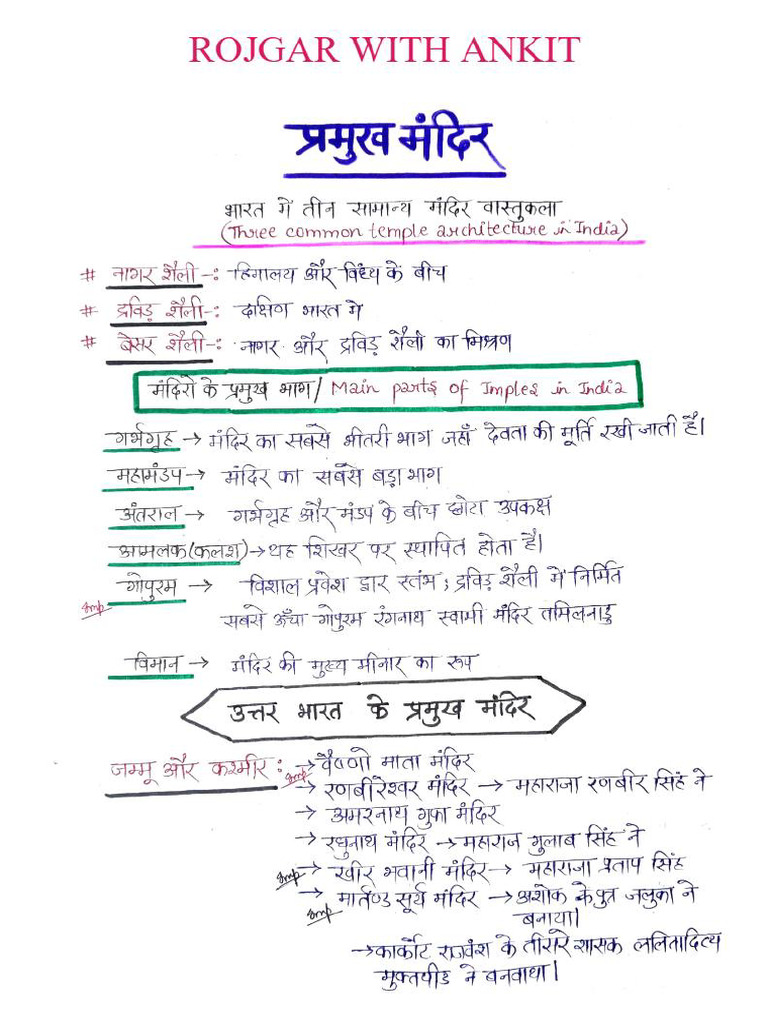 ROJGAR WITH ANKIT
प्रमुख मंदिर
भारत में तीन सामान्य मंदिर वास्तुकला
(Three common temple architecture in India)
# नागर शैली -: हिमालय और विंध्य के बीच
# द्रविड़ शैली -: दाक्षिण भारत में
# बेसर शैली -: नागर और द्रविड़ शैली का मिश्रण
मंदिरों के प्रमुख भाग / Main parts of Imples in India
गर्भगृह → मंदिर का सबसे भीतरी भाग जहाँ देवता की मूर्ति रखी जाती है।
महामंडप → मंदिर का सबसे बड़ा भाग
अंतराल → गर्भगृह और मंडप के बीच छोटा उपकक्ष
आमलक (कलश) → यह शिखर पर स्थापित होता है।
गोपुरम → विशाल प्रवेश द्वार स्तंभ ; द्रविड़ शैली में निर्मित
Imp सबसे ऊँचा गोपुरम रंगनाथ स्वामी मंदिर तमिलनाडु
विमान → मंदिर की मुख्य मीनार का रूप
उत्तर भारत के प्रमुख मंदिर
जम्मू और कश्मीर : → वैष्णो माता मंदिर
Imp → रणबीरेश्वर मंदिर → महाराजा रणबीर सिंह ने
→ अमरनाथ गुफा मंदिर
→ रघुनाथ मंदिर → महाराज गुलाब सिंह ने
Imp → खीर भवानी मंदिर → महाराजा प्रताप सिंह
Imp → मार्तण्ड सूर्य मंदिर → अशोक के पुत्र जलुका ने
बनाया।
→ कार्कोट राजवंश के तीसरे शासक ललितादित्य
मुक्तपीड ने बनवाया।